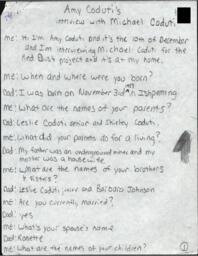 Amy Coduti's
interview with Michael Coduti
me: Hi I'm Amy Coduti and it's the 10th of December
and I'm interviewing Michael Coduti for the
Red Dust project and it's at my home.
me: When and where were you born?
Dad: I was born on November 3rd in Ishpeming.
me: What are the names of your parents?
Dad: Leslie Coduti senior and Shirley Coduti.
me: What did your parents do for a living?
Dad: My father was an underground miner and my
mother was a housewife.
me: What are the names of your brothers
& sisters?
Dad: Leslie Coduti junior and Barbara Johnson
me: Are you currently married?
Dad: yes
me: What's your spouse's name
Dad: Ronette
me: What are the names of your children?
1